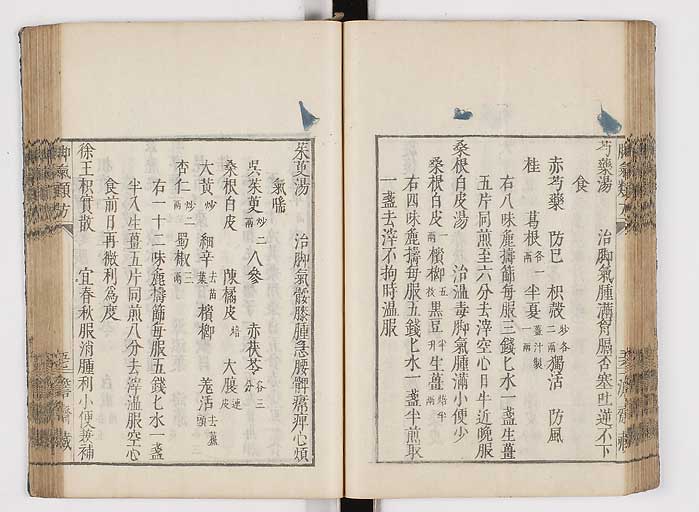 芍藥湯　治脚氣腫滿胷膈否塞吐逆不下
食
赤芍藥　防已　枳殻炒各二兩　獨活　防風
桂　葛根各一兩　半夏薑汁製一兩
右八味麁擣篩每服三錢匕水一盞生薑
五片同煎至六分去滓空心日午近晚服
桑根白皮湯　治溫毒脚氣腫滿小便少
桑根白皮一兩　檳榔五枚　黒豆半升　生薑焙半兩
右四味麁擣每服五錢匕水一盞半煎取
一盞去滓不拘時温服
茱萸湯　治脚氣髀膝腫急腰髀痛痺心煩
氣喘
吳茱萸炒二兩　人參　赤茯苓各三分
桑根白皮　陳橘皮焙　大腹連皮
大黃炒　細辛去苗葉　檳榔　羗活去蘆頭
杏仁炒二兩　蜀椒三兩
右一十二味麁擣篩每服五錢匕水一盞
半入生薑五片同煎八分去滓溫服空心
食前日再微利爲度
徐王枳實散　宜春秋服消腫利小便兼補
脚氣類方